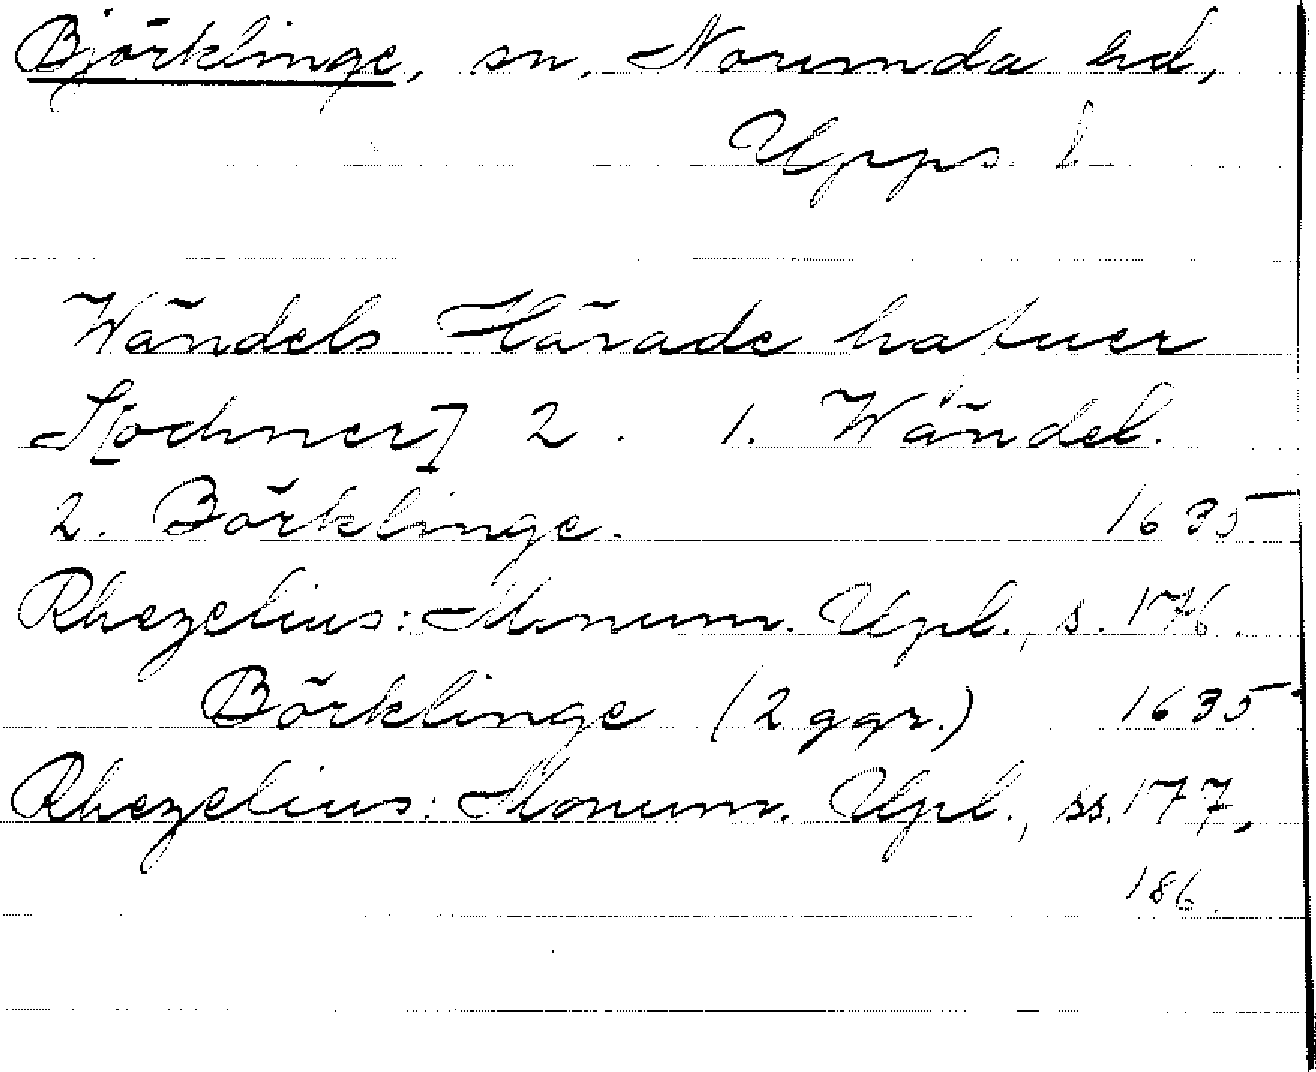 Björklinge, sn, Norunda hd,
Upps. l
Wändels Härade hafuer
S[ochner] 2. 1. Wändel.
2. Börklinge. 1635
Rhezelius: Monum. Upl., s. 176.
Börklinge (2 ggr.) 1635
Rhezelius: Monum. Upl., ss. 177,
186